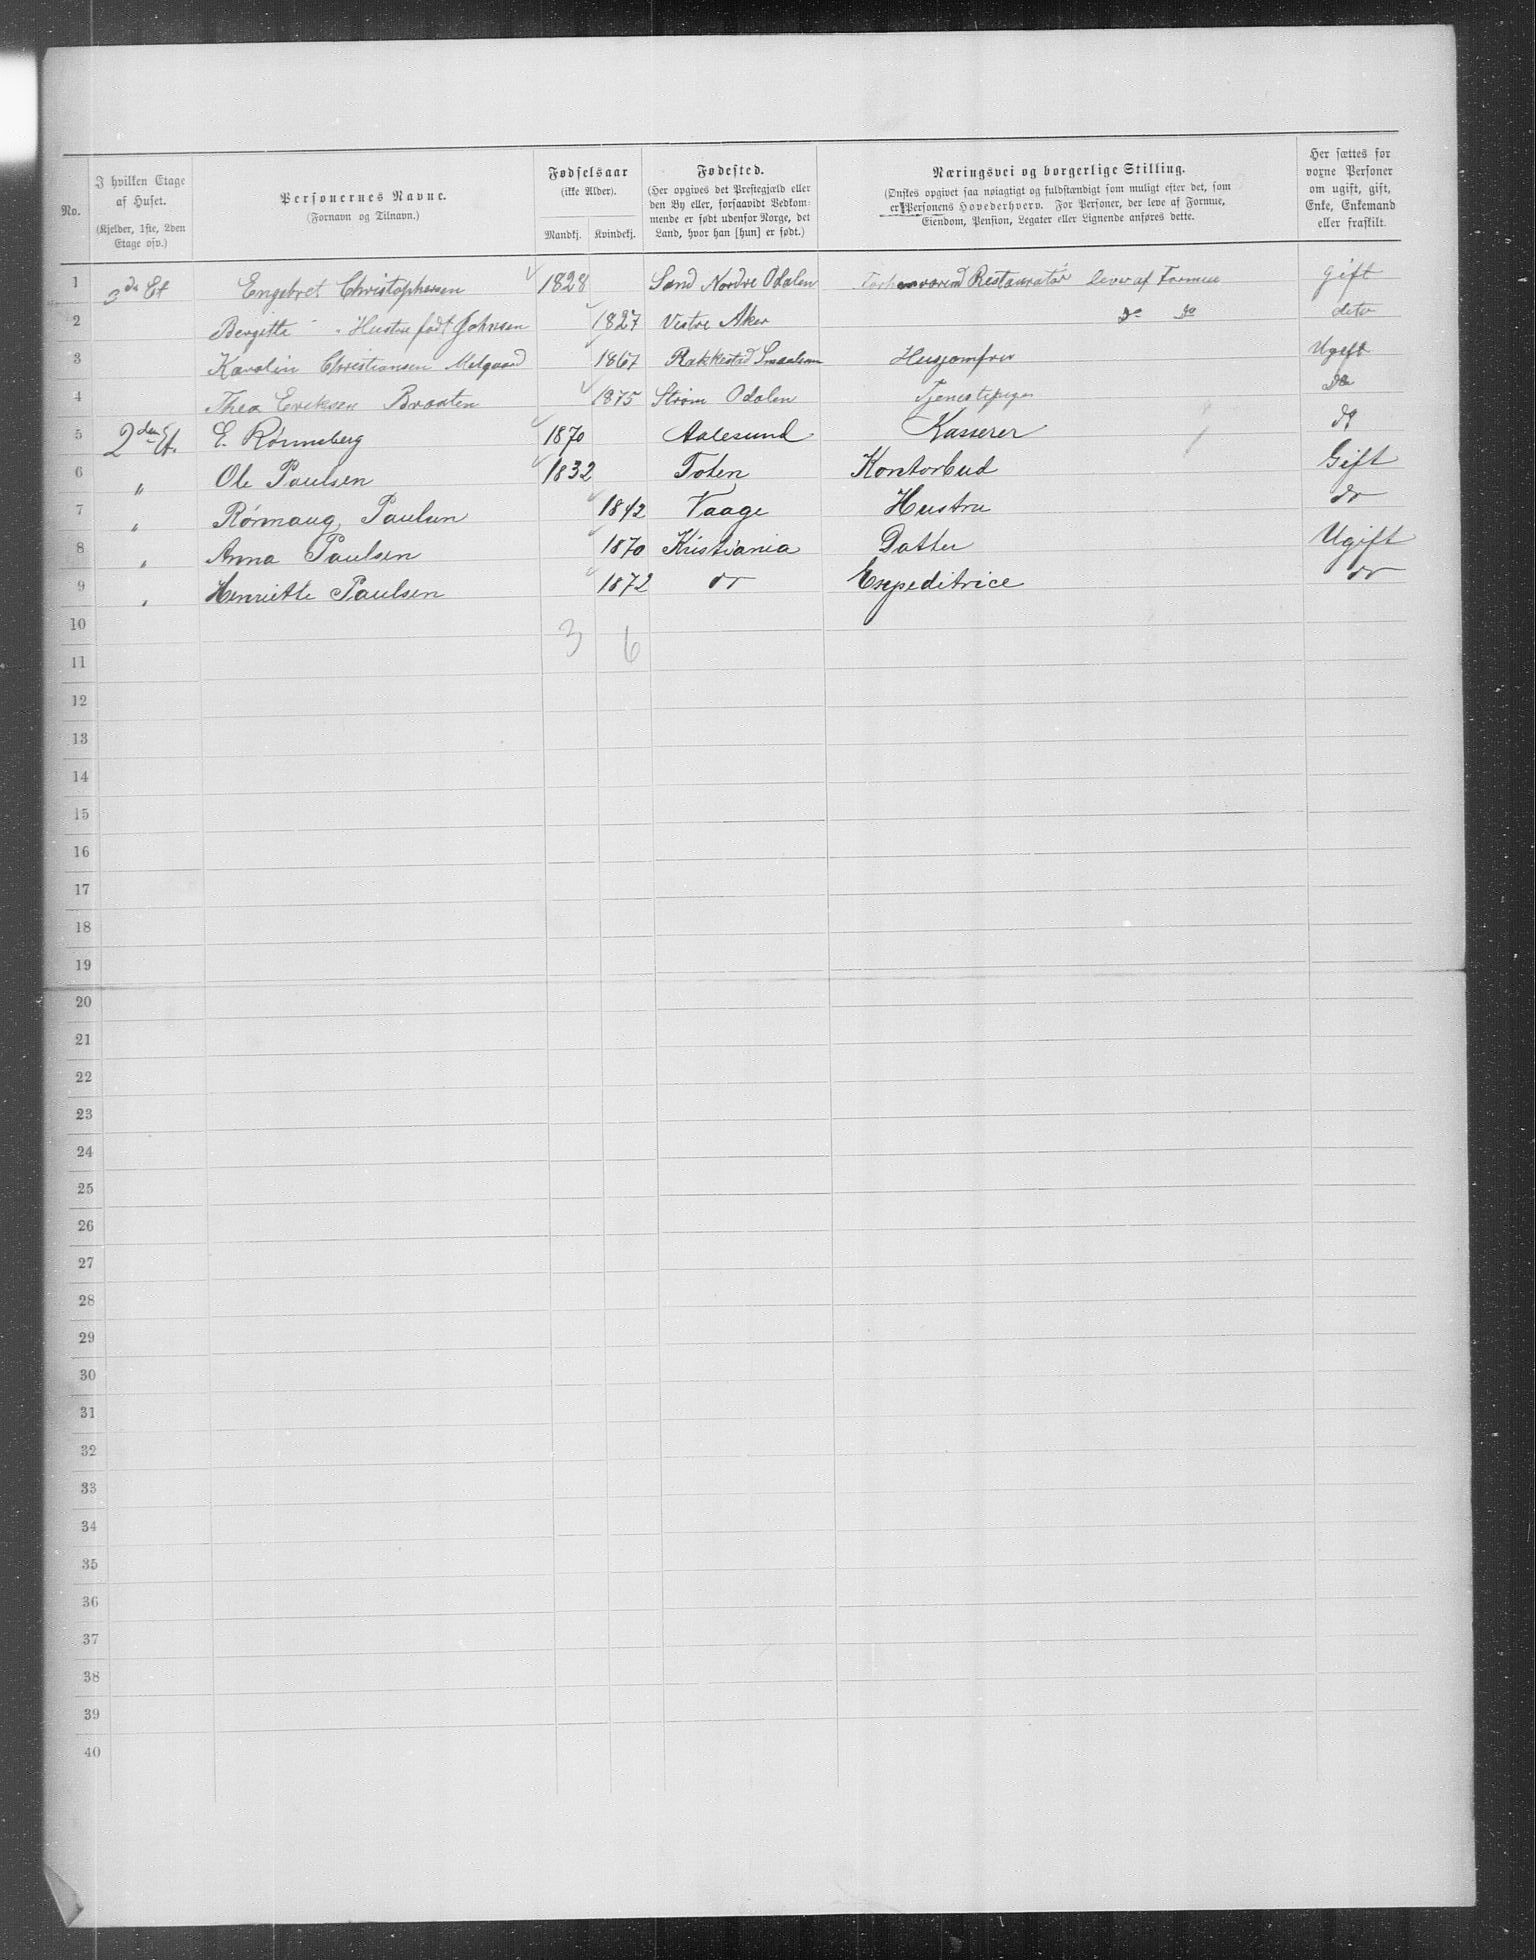 No.
I hvilken Etage af Huset.
(Kjelder, 1ste, 2den Etage osv.)
Personernes Navne.
(Fornavn og Tilnavn.)
Fødselsaar
(ikke Alder).
Mandkj. Kvindekj.
Fødested.
(Her opgives det Prestegjæld eller den By eller, forsaavidt Vedkommende er født udenfor Norge, det Land, hvor han [hun] er født.)
Næringsvei og borgerlige Stilling.
(Ønskes opgivet saa nøiagtigt og fuldstændigt som muligt efter det, som er Personens Hovederhverv. For Personer, der leve af Formue, Eiendom, Pension, Legater eller Lignende anføres dette.
Her sættes for vorne Personer om ugift, gift, Enke, Enkemand eller fraskilt.
1 3de Et Engebret Christophersen 1828 Sand Nordre Odalen Forhenværend Restauratør lever af Formue Gift
2 Bergitte " " Hustru født Johnsen 1827 Vestre Aker Do Do dito
3 Karolin Christiansen Melgaard 1867 Rakkestad Smaalenen Husjomfru Ugift
4 Thea Eriksen Braaten 1875 Strøm Odalen Tjenestepige Do
5 2den Et. E. Rønneberg 1870 Aalesund Kasserer do
6 " Ole Paulsen 1832 Toten Kontorbud Gift
7 " Rønnaug Paulsen 1842 Vaage Hustru do
8 " Anna Paulsen 1870 Kristiania Datter Ugift
9 " Henriette Paulsen 1872 do Expeditrice do
10 3 6
11
12
13
14
15
16
17
18
19
20
21
22
23
24
25
26
27
28
29
30
31
32
33
34
35
36
37
38
39
40